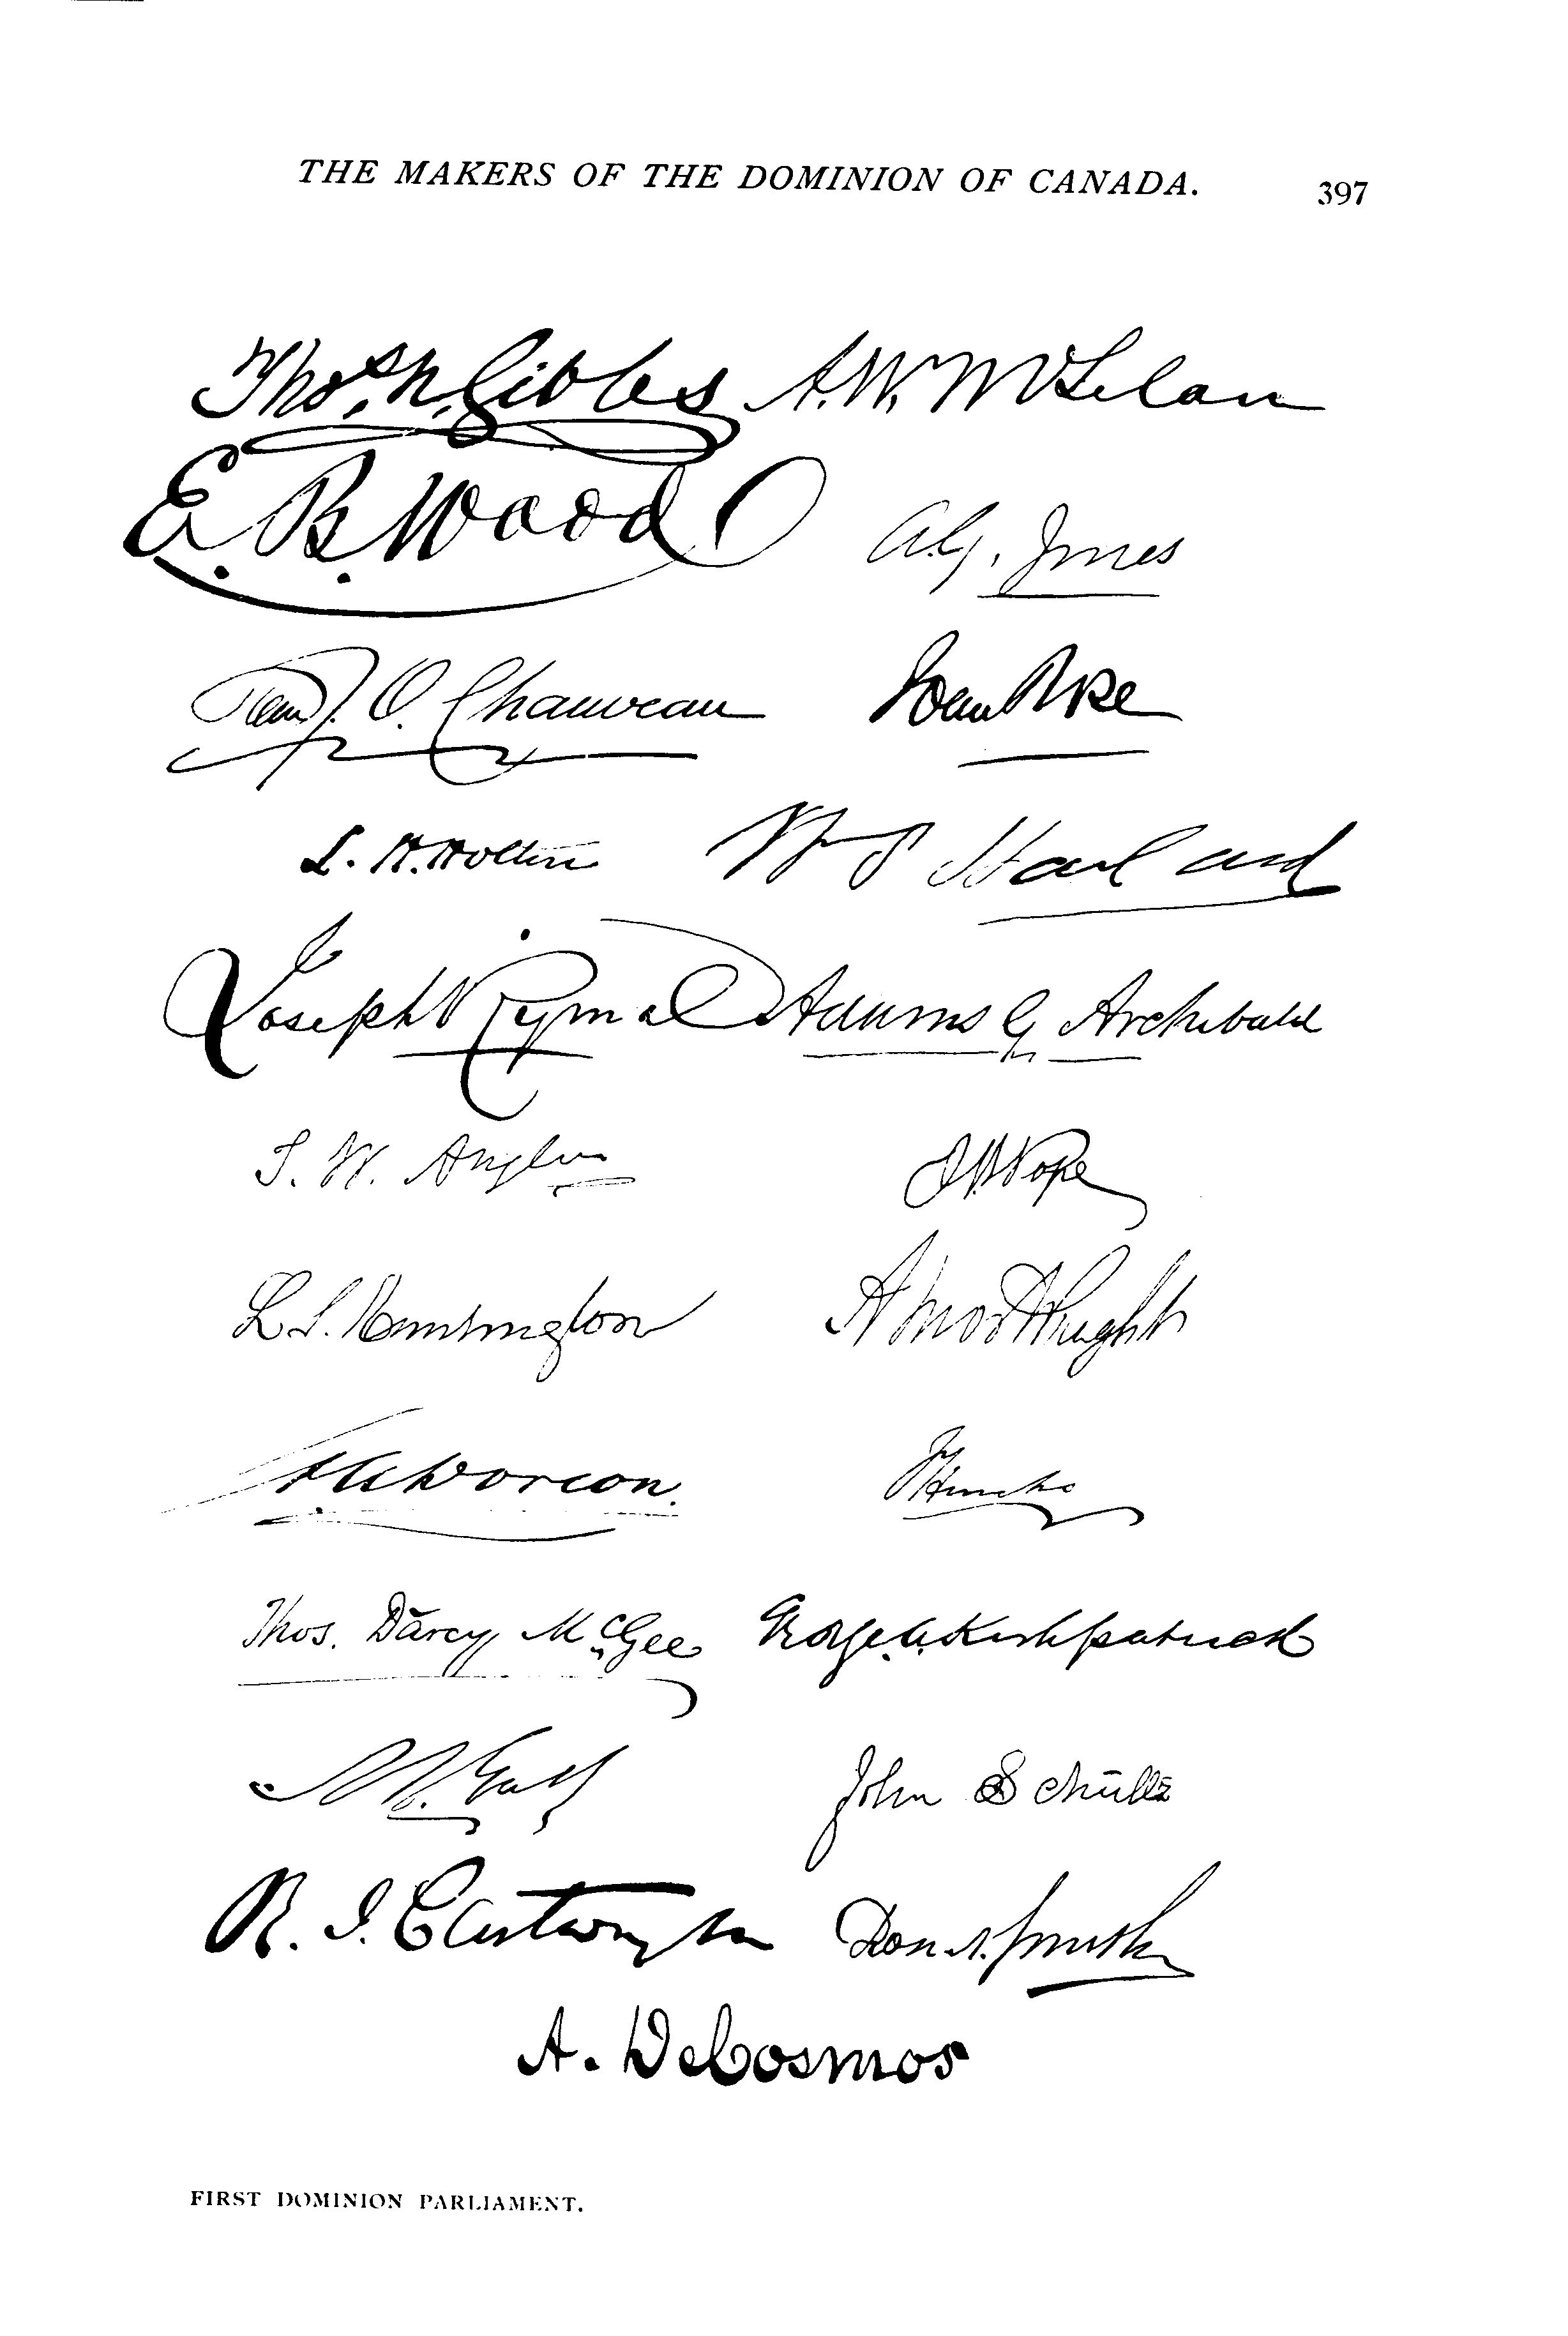 THE MAKERS OF THE DOMINION OF CANADA. 397
Thos. N. Gibbs A. W. McLelan
E. B. Wood A. G. Jones
J. O. Chauveau John Rose
L. H. Holton Howland
Joseph Rymal Adams G. Archibald
T. W. Anglin J. H. Pope
L. S. Huntington Amos Wright
A A Dorion. F Hincks
Thos. Darcy McGee George A. Kirkpatrick
A. T. Galt John Schultz
R. J. Cartwright Don. A. Smith
A. DeCosmos
FIRST DOMINION PARLIAMENT.